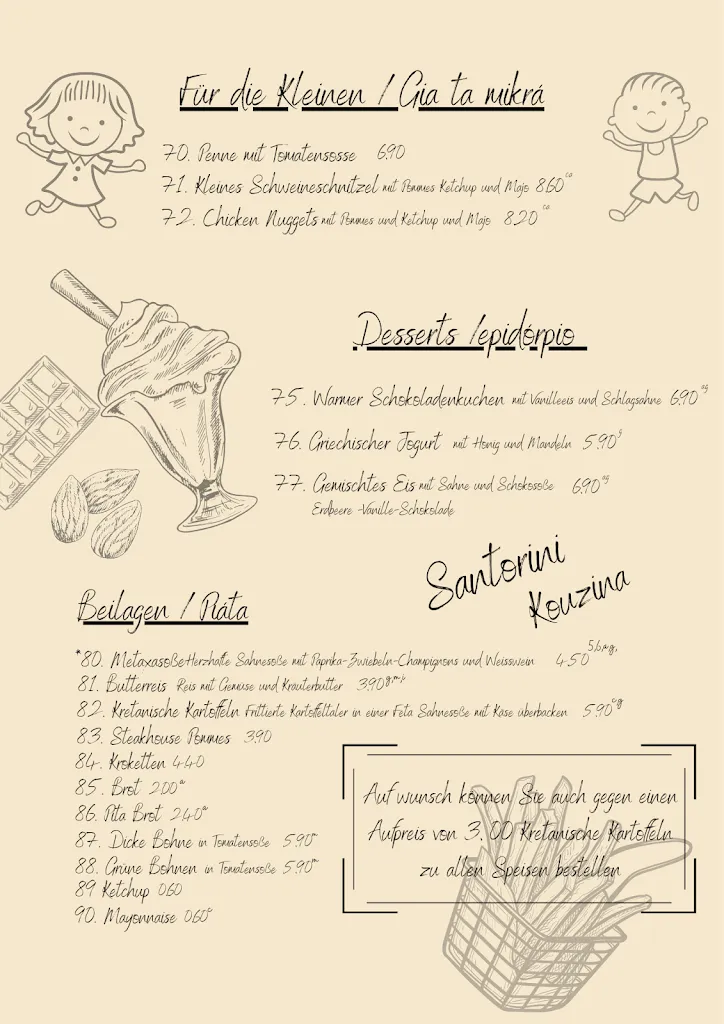 Für die Kleinen / Gia ta mikrá
70. Penne mit Tomatensosse 6.90
71. Kleines Schweineschnitzel mit Pommes Ketchup und Majo 8.60
72. Chicken Nuggets mit Pommes und Ketchup und Majo 8.20
Desserts /epidórpio
75. Warmer Schokoladenkuchen mit Vanilleeis und Schlagsahne 6.90
76. Griechischer Jogurt mit Honig und Mandeln 5.90
77. Gemischtes Eis mit Sahne und Schokosoße 6.90
Erdbeere -Vanille-Schokolade
Santorini
Kouzina
Beilagen / Piáta
*80. Metaxasoße Herzhafte Sahnesoße mit Paprika-Zwiebeln-Champignons und Weisswein 4.50
81. Butterreis Reis mit Gemüse und Kräuterbutter 3.90
82. Kretanische Kartoffeln Frittierte Kartoffeltaler in einer Feta Sahnesoße mit Käse überbacken 5.90
83. Steakhouse Pommes 3.90
84. Kroketten 4.40
85. Brot 2.00
86. Pita Brot 2.40
87. Dicke Bohne in Tomatensoße 5.90
88. Grüne Bohnen in Tomatensoße 5.90
89 Ketchup 0.60
90. Mayonnaise 0.60
Auf wunsch können Sie auch gegen einen
Aufpreis von 3,00 Kretanische Kartoffeln
zu allen Speisen bestellen